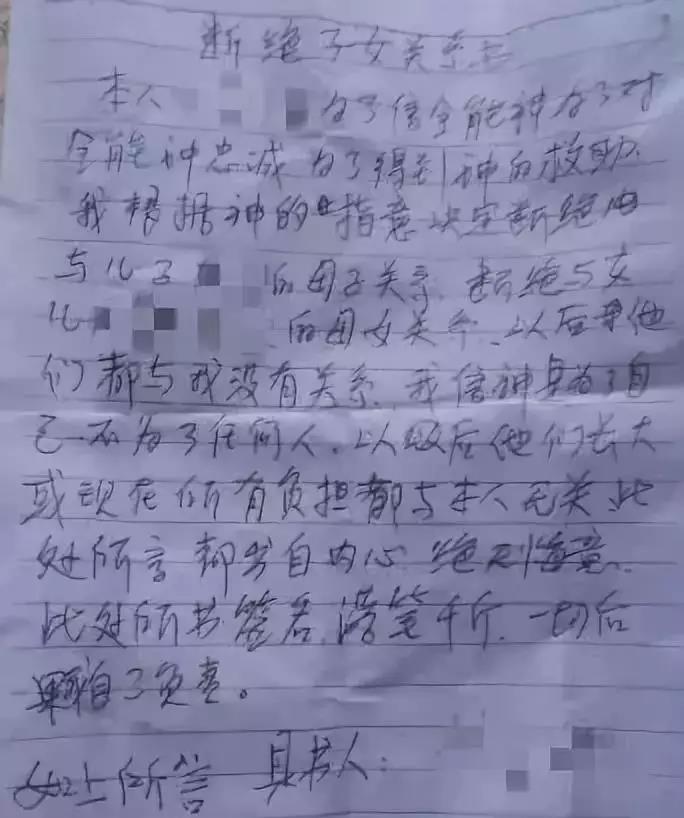 断绝子女关系书
本人 为了信全能神为了对
全能神忠诚 为了得到神的救助、
我根据神的 指意决定断绝
与儿子 的母子关系、断绝与女
儿 的母女关系、以后 他
们都与我没有关系、我信神 为了自
己不为了任何人、以 后他们长大
或现在所有负担都与本人无关、此
处所言都出自内心 绝 悔意、
此处所书签名、落笔千斤、一切后
果自 负责。
如上所言 具书人：